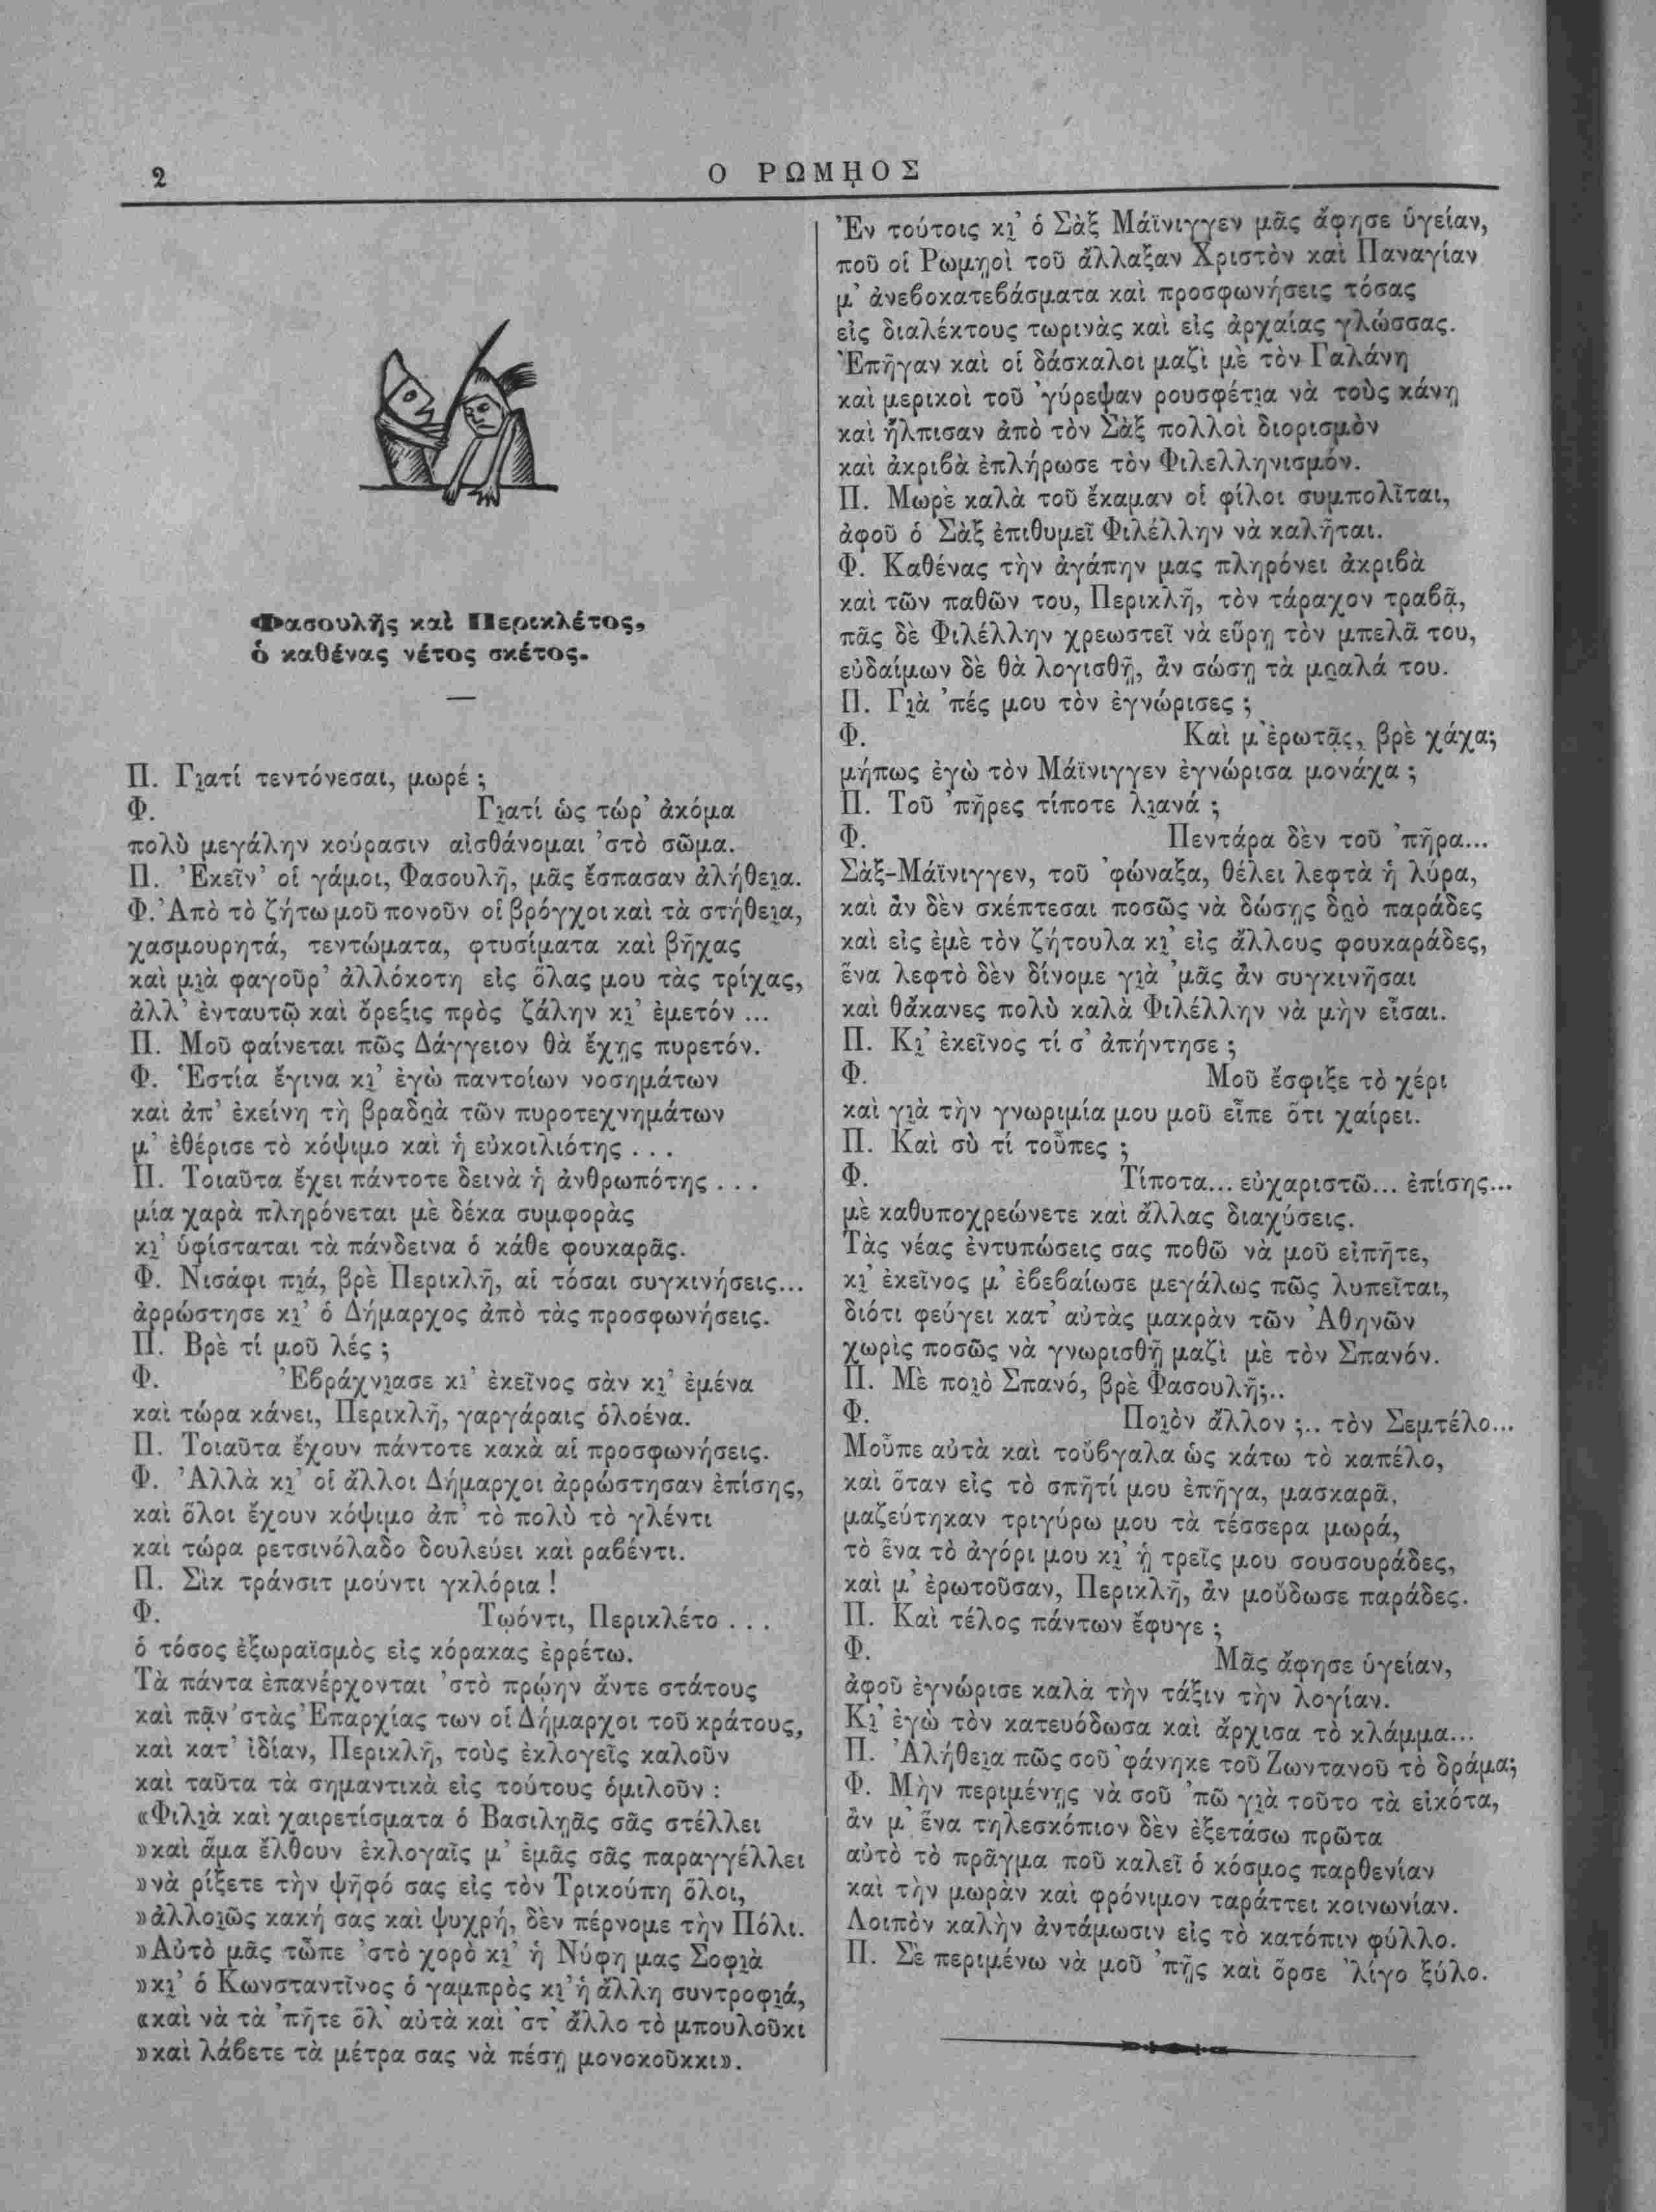 2
Ο ΡΩΜῌΟΣ
Φασουλῆς καὶ Περικλέτος,
ὁ καθένας νέτος σκέτος.
Π. Γι̮ατί τεντόνεσαι, μωρέ ;
Φ. Γι̮ατί ὡς τώρ’ ἀκόμα
πολὺ μεγάλην κούρασιν αἰσθάνομαι ’στὸ σῶμα.
Π. ’Εκεῖν’ οἱ γάμοι, Φασουλῆ, μᾶς ἔσπασαν ἀλήθει̮α.
Φ. ’Απὸ τὸ ζήτω μοῦ πονοῦν οἱ βρόγχοι καὶ τὰ στήθει̮α,
χασμουρητά, τεντώματα, φτυσίματα καὶ βῆχας
καὶ μι̮ὰ φαγοῦρ’ ἀλλόκοτη εἰς ὅλας μου τὰς τρίχας,
ἀλλ’ ἐνταυτῷ καὶ ὄρεξις πρὸς ζάλην κι̮’ ἐμετόν ...
Π. Μοῦ φαίνεται πῶς Δάγγειον θὰ ἔχῃς πυρετόν.
Φ. Ἑστία ἔγινα κι̮’ ἐγὼ παντοίων νοσημάτων
καὶ ἀπ’ ἐκείνη τὴ βραδυ̮ὰ τῶν πυροτεχνημάτων
μ’ ἐθέρισε τὸ κόψιμο καὶ ἡ εὐκοιλιότης . . .
Π. Τοιαῦτα ἔχει πάντοτε δεινὰ ἡ ἀνθρωπότης . . .
μία χαρὰ πληρόνεται μὲ δέκα συμφορὰς
κι̮’ ὑφίσταται τὰ πάνδεινα ὁ κάθε φουκαρᾶς.
Φ. Νισάφι πι̮ά, βρὲ Περικλῆ, αἱ τόσαι συγκινήσεις...
ἀρρώστησε κι̮’ ὁ Δήμαρχος ἀπὸ τὰς προσφωνήσεις.
Π. Βρὲ τί μοῦ λές ;
Φ. ’Εβράχνι̮ασε κι’ ἐκεῖνος σὰν κι̮’ ἐμένα
καὶ τώρα κάνει, Περικλῆ, γαργάραις ὁλοένα.
Π. Τοιαῦτα ἔχουν πάντοτε κακὰ αἱ προσφωνήσεις.
Φ. ’Αλλὰ κι̮’ οἱ ἄλλοι Δήμαρχοι ἀρρώστησαν ἐπίσης,
καὶ ὅλοι ἔχουν κόψιμο ἀπ’ τὸ πολὺ τὸ γλέντι
καὶ τώρα ρετσινόλαδο δουλεύει καὶ ραβέντι.
Π. Σὶκ τράνσιτ μούντι γκλόρια !
Φ. Τῳόντι, Περικλέτο . . .
ὁ τόσος ἐξωραϊσμὸς εἰς κόρακας ἐρρέτω.
Τὰ πάντα ἐπανέρχονται ’στὸ πρῴην ἄντε στάτους
καὶ πᾷν ’στὰς ’Επαρχίας των οἱ Δήμαρχοι τοῦ κράτους,
καὶ κατ’ ἰδίαν, Περικλῆ, τοὺς ἐκλογεῖς καλοῦν
καὶ ταῦτα τὰ σημαντικὰ εἰς τούτους ὁμιλοῦν :
«Φιλι̮ὰ καὶ χαιρετίσματα ὁ Βασιλῃᾶς σᾶς στέλλει
»καὶ ἅμα ἔλθουν ἐκλογαῖς μ’ ἐμᾶς σᾶς παραγγέλλει
»νὰ ρίξετε τὴν ψῆφό σας εἰς τὸν Τρικούπη ὅλοι,
»ἀλλοι̮ῶς κακή σας καὶ ψυχρή, δὲν πέρνομε τὴν Πόλι.
»Αὐτὸ μᾶς τὦπε ’στὸ χορὸ κι̮’ ἡ Νύφη μας Σοφι̮ὰ
»κι̮’ ὁ Κωνσταντῖνος ὁ γαμπρὸς κι̮’ ἡ ἄλλη συντροφι̮ά,
«καὶ νὰ τὰ ’πῆτε ὅλ’ αὐτὰ καὶ ’στ’ ἄλλο τὸ μπουλοῦκι
»καὶ λάβετε τὰ μέτρα σας νὰ πέσῃ μονοκοῦκκι».
’Εν τούτοις κι̮’ ὁ Σὰξ Μάϊνιγγεν μᾶς ἄφησε ὑγείαν,
ποῦ οἱ Ρωμῃοὶ τοῦ ἄλλαξαν Χριστὸν καὶ Παναγίαν
μ’ ἀνεβοκατεβάσματα καὶ προσφωνήσεις τόσας
εἰς διαλέκτους τωρινὰς καὶ εἰς ἀρχαίας γλώσσας.
’Επῆγαν καὶ οἱ δάσκαλοι μαζὶ μὲ τὸν Γαλάνη
καὶ μερικοὶ τοῦ ’γύρεψαν ρουσφέτι̮α νὰ τοὺς κάνῃ
καὶ ἤλπισαν ἀπὸ τὸν Σὰξ πολλοὶ διορισμὸν
καὶ ἀκριβὰ ἐπλήρωσε τὸν Φιλελληνισμόν.
Π. Μωρὲ καλὰ τοῦ ἔκαμαν οἱ φίλοι συμπολῖται,
ἀφοῦ ὁ Σὰξ ἐπιθυμεῖ Φιλέλλην νὰ καλῆται.
Φ. Καθένας τὴν ἀγάπην μας πληρόνει ἀκριβὰ
καὶ τῶν παθῶν του, Περικλῆ, τὸν τάραχον τραβᾷ,
πᾶς δὲ Φιλέλλην χρεωστεῖ νὰ εὕρῃ τὸν μπελᾶ του,
εὐδαίμων δὲ θὰ λογισθῇ, ἂν σώσῃ τὰ μυ̮αλά του.
Π. Γι̮ὰ ’πές μου τὸν ἐγνώρισες ;
Φ. Καὶ μ’ ἐρωτᾷς, βρὲ χάχα;
μήπως ἐγὼ τὸν Μάϊνιγγεν ἐγνώρισα μονάχα ;
Π. Τοῦ ’πῆρες τίποτε λι̮ανά ;
Φ. Πεντάρα δὲν τοῦ ’πῆρα...
Σὰξ-Μάϊνιγγεν, τοῦ ’φώναξα, θέλει λεφτὰ ἡ λύρα,
καὶ ἂν δὲν σκέπτεσαι ποσῶς νὰ δώσῃς δυ̮ὸ παράδες
καὶ εἰς ἐμὲ τὸν ζήτουλα κι̮’ εἰς ἄλλους φουκαράδες,
ἕνα λεφτὸ δὲν δίνομε γι̮ὰ ’μᾶς ἂν συγκινῆσαι
καὶ θἄκανες πολὺ καλὰ Φιλέλλην νὰ μὴν εἶσαι.
Π. Κι̮’ ἐκεῖνος τί σ’ ἀπήντησε ;
Φ. Μοῦ ἔσφιξε τὸ χέρι
καὶ γι̮ὰ τὴν γνωριμία μου μοῦ εἶπε ὅτι χαίρει.
Π. Καὶ σὺ τί τοὖπες ;
Φ. Τίποτα... εὐχαριστῶ... ἐπίσης...
μὲ καθυποχρεώνετε καὶ ἄλλας διαχύσεις.
Τὰς νέας ἐντυπώσεις σας ποθῶ νὰ μοῦ εἰπῆτε,
κι̮’ ἐκεῖνος μ’ ἐβεβαίωσε μεγάλως πῶς λυπεῖται,
διότι φεύγει κατ’ αὐτὰς μακρὰν τῶν ’Αθηνῶν
χωρὶς ποσῶς νὰ γνωρισθῇ μαζὶ μὲ τὸν Σπανόν.
Π. Μὲ ποι̮ὸ Σπανό, βρὲ Φασουλῆ;..
Φ. Ποι̮ὸν ἄλλον ;.. τὸν Σεμτέλο...
Μοὖπε αὐτὰ καὶ τοὔβγαλα ὡς κάτω τὸ καπέλο,
καὶ ὅταν εἰς τὸ σπῆτί μου ἐπῆγα, μασκαρᾶ,
μαζεύτηκαν τριγύρω μου τὰ τέσσερα μωρά,
τὸ ἕνα τὸ ἀγόρι μου κι̮’ ᾑ τρεῖς μου σουσουράδες,
καὶ μ’ ἐρωτοῦσαν, Περικλῆ, ἂν μοὔδωσε παράδες.
Π. Καὶ τέλος πάντων ἔφυγε ;
Φ. Μᾶς ἄφησε ὑγείαν,
ἀφοῦ ἐγνώρισε καλὰ τὴν τάξιν τὴν λογίαν.
Κι̮’ ἐγὼ τὸν κατευόδωσα καὶ ἄρχισα τὸ κλάμμα...
Π. ’Αλήθει̮α πῶς σοῦ ’φάνηκε τοῦ Ζωντανοῦ τὸ δράμα;
Φ. Μὴν περιμένῃς νὰ σοῦ ’πῶ γι̮ὰ τοῦτο τὰ εἰκότα,
ἂν μ’ ἕνα τηλεσκόπιον δὲν ἐξετάσω πρῶτα
αὐτὸ τὸ πρᾶγμα ποῦ καλεῖ ὁ κόσμος παρθενίαν
καὶ τὴν μωρὰν καὶ φρόνιμον ταράττει κοινωνίαν.
Λοιπὸν καλὴν ἀντάμωσιν εἰς τὸ κατόπιν φύλλο.
Π. Σὲ περιμένω νὰ μοῦ ’πῇς καὶ ὅρσε ’λίγο ξύλο.